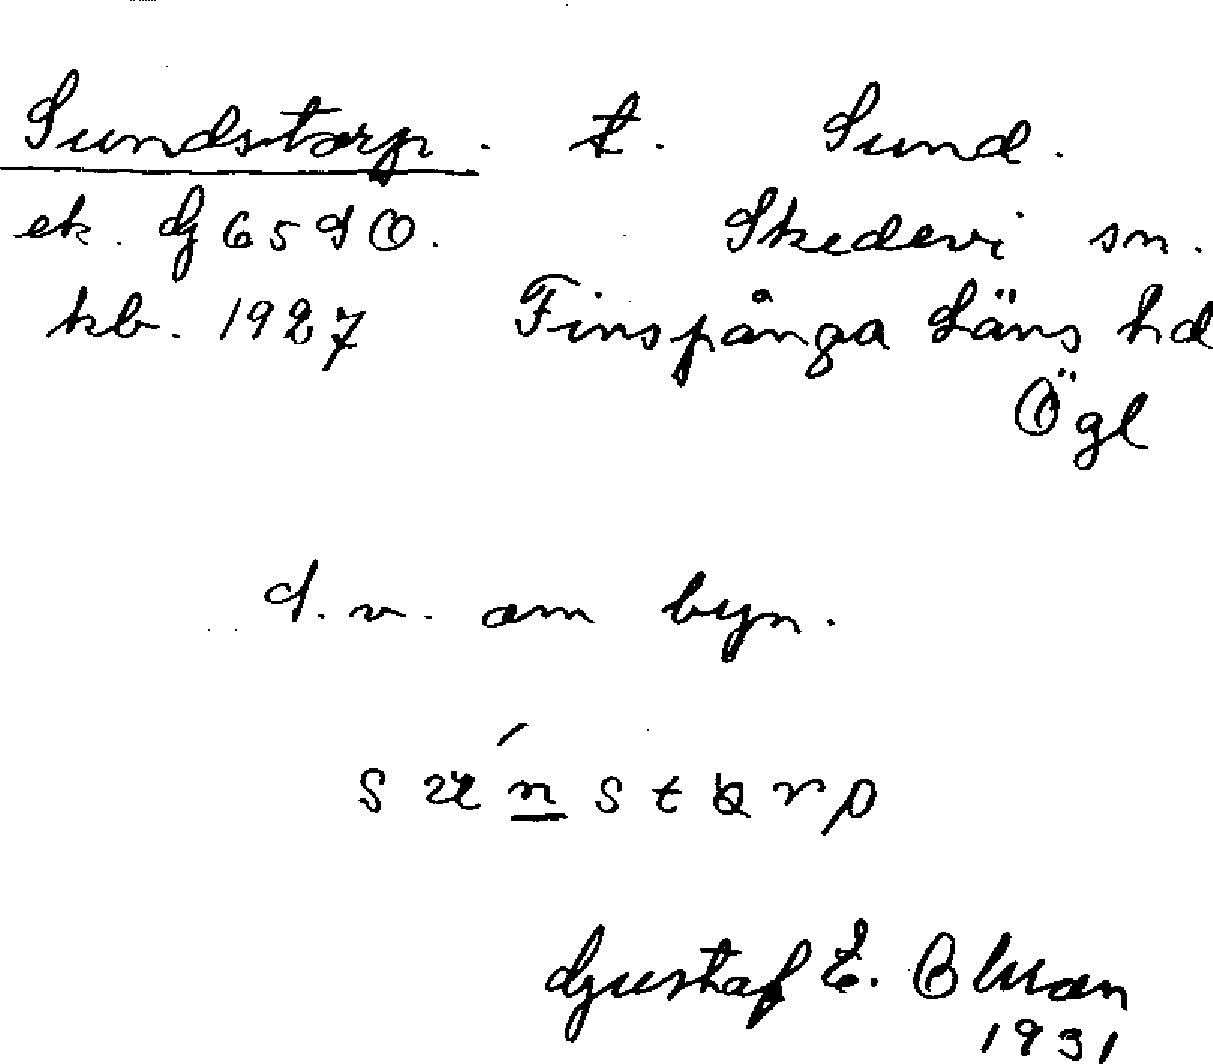 Sundstorp. t. Sund.
ek. G 65 d O. Skedevi sn.
kb. 1927 Finspånga Läns hd
Ögl
d. v. om byn.
Gustaf E.
1931